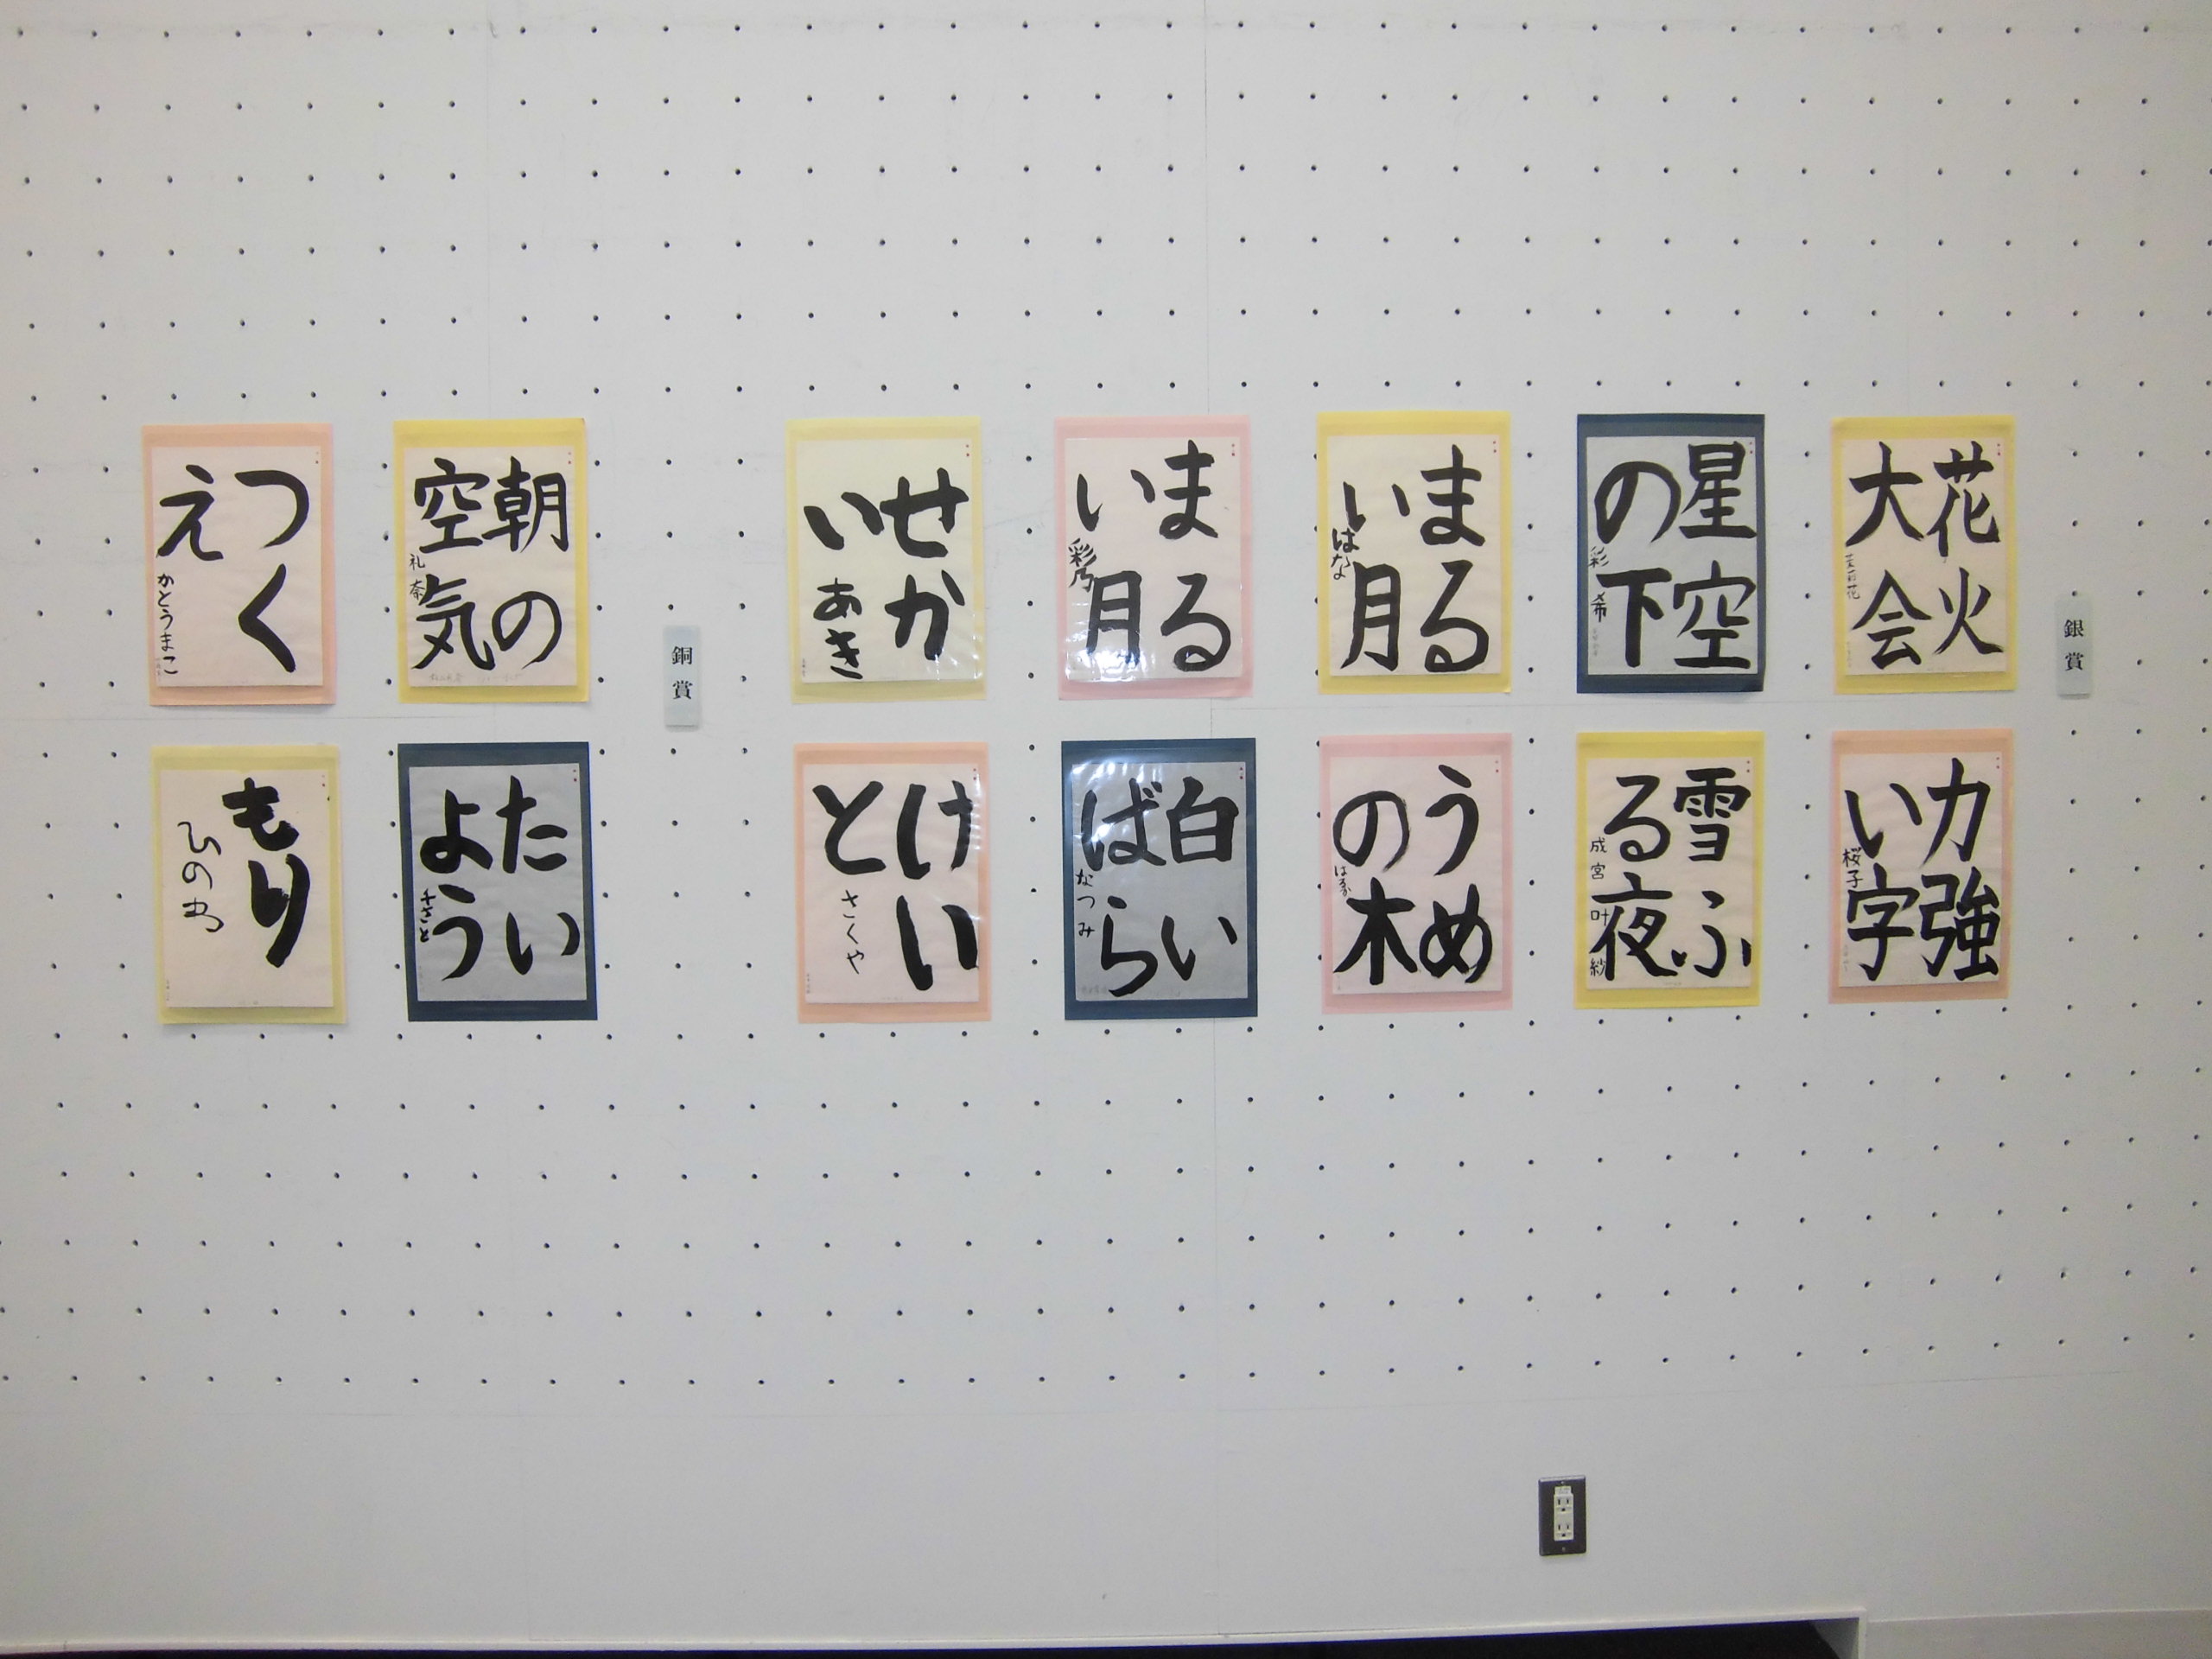 銀賞
花火
大会
力強
い字
桜子
星空
の下
彩希
雪ふ
る夜
成宮叶紗
まる
い月
はな
うめ
の木
まる
い月
彩乃
白い
ばら
なつみ
せか
い
あき
けい
と
さくや
銅賞
朝の
空気
礼奈
たい
よう
千さと
つく
え
かとうまこ
もり